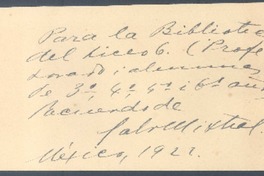 Para la Biblioteca
del Liceo 6. (Profe
sorado i alumnas
de 3º, 4º, 4º i 6º año
Recuerdo de
Gabr. Mistral.
México, 1922.